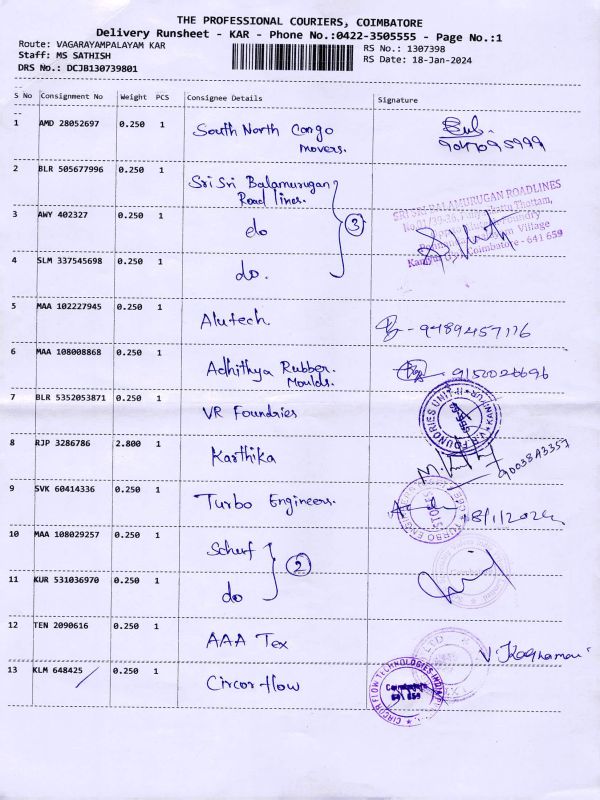 THE PROFESSIONAL COURIERS, COIMBATORE
Delivery Runsheet - KAR - Phone No.:0422-3505555 - Page No.:1
Route: VAGARAYAMPALAYAM KAR
RS No.: 1307398
Staff: MS SATHISH
RS Date: 18-Jan-2024
DRS No.: DCJB130739801
S No Consignment No Weight PCS Consignee Details Signature
1 AMD 28052697 0.250 1 South North Congo
movers.
2 BLR 505677996 0.250 1 Sri Sri Balamurugan
Road lines.
SRI SRI BALAMURUGAN ROADLINES
3 AWY 402327 0.250 1 do
3
4 SLM 337545698 0.250 1 do.
Coimbatore - 641 659
5 MAA 102227945 0.250 1 Alutech
6 MAA 108008868 0.250 1 Adhithya Rubber.
Moulds.
7 BLR 5352053871 0.250 1 VR Foundries
V.R. FOUNDRIES UNIT-II
8 RJP 3286786 2.800 1 Karthika
9 SVK 60414336 0.250 1 Turbo Engineers.
TURBO ENGINEERS
18/1/2024
10 MAA 108029257 0.250 1 Scherf
2
11 KUR 531036970 0.250 1 do
12 TEN 2090616 0.250 1 AAA Tex
13 KLM 648425 0.250 1 Circor flow
CIRCOR FLOW TECHNOLOGIES INDIA
Coimbatore
641 659